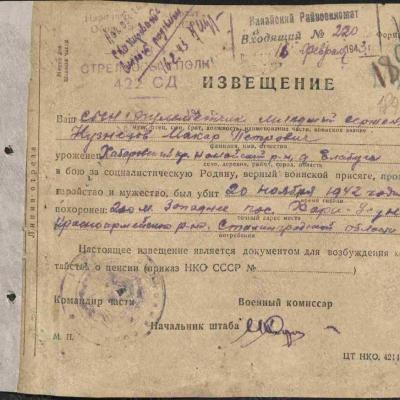 Нанайский Райвоенкомат
Входящий № 220
16 февраля 1943
Форма
СТРЕЛКОВЫЙ ПОЛК
422 СД
ИЗВЕЩЕНИЕ
Ваш сын пулеметчик младший сержант
(муж, отец, сын, брат, должность, наименование части, воинское звание
Кузнецов Макар Петрович
фамилия, имя, отчество
уроженец Хабаровский кр. Нанайский р-н, д. Елабуга
в бою за социалистическую Родину, верный воинской присяге, про
геройство и мужество, был убит 20 ноября 1942 года
похоронен: 200 м. Западнее пос.
точный адрес места
Красноармейского р-на, Сталинградской области
погребения
Настоящее извещение является документом для возбуждения хо
тайства о пенсии (приказ НКО СССР №
Командир части
Военный комиссар
Начальник штаба
М. П.
ЦТ НКО. 4214
Линия отреза